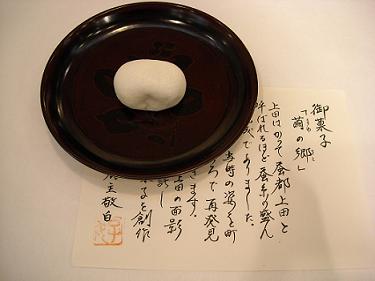 御菓子
「繭の郷」
上田はかつて蚕都上田と
呼ばれるほど蚕糸の盛ん
でありました。
当時の姿を町
ろで再発見
きます。
上田の面影
を創作
主敬白